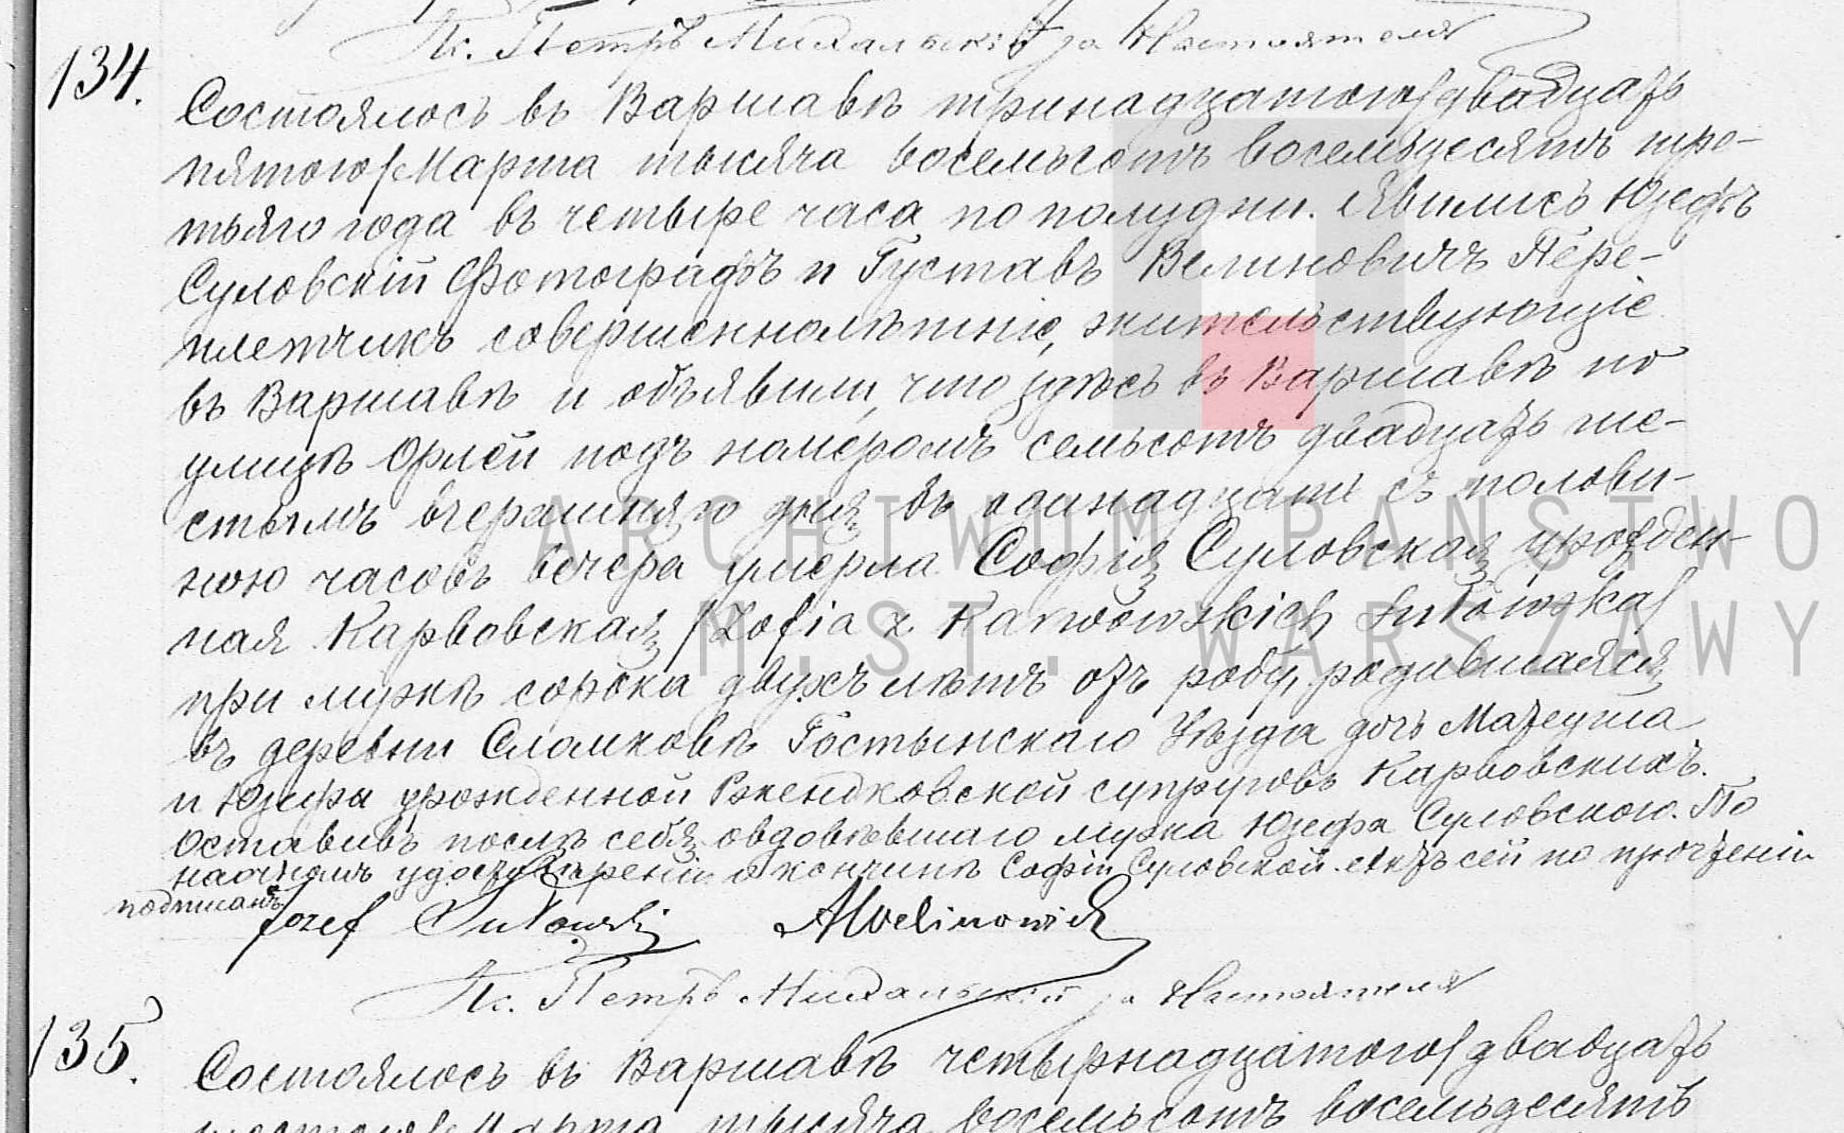 Кс. Петръ Михальскій за Настоятеля
134.
Состоялось въ Варшавѣ тринадцатого/двадцать
пятого/Марта тысяча восемьсотъ восемьдесятъ тре-
тьяго года въ четыре часа по полудни. Явились Юзефъ
Суловскій Фотографъ и Густавъ Велиновичъ Пере-
плетчикъ совершеннолѣтніе, жительствующіе
въ Варшавѣ и объявили, что здѣсь въ Варшавѣ по
улицѣ Орлей подъ номеромъ семьсотъ двадцать ше-
стымъ вчерашняго дня въ одинадцать съ полови-
ною часовъ вечера умерла Софія Суловская урожден-
ная Карвовская /Zofia z Karwowskich Sułowska/
при мужѣ сорока двухъ лѣтъ отъ роду, родившаяся
въ деревни Сломковѣ Гостынскаго Уѣзда дочь Матеуша
и Юзефа урожденной Ржендковской супруговъ Карвовскихъ.
Оставивъ послѣ себя овдовѣвшаго мужа Юзефа Суловского. По
наочномъ удостовѣреніи о кончинѣ Софіи Суловской Актъ сей по прочтеніи
подписанъ
Józef Sułowski AWelinowicz
Кс. Петръ Михальскій за Настоятеля
135.
Состоялось въ Варшавѣ четырнадцатого/двадцать
шестого/Марта тысяча восемьсотъ восемьдесятъ
ARCHIWUM PAŃSTWO
M.ST. WARSZAWY